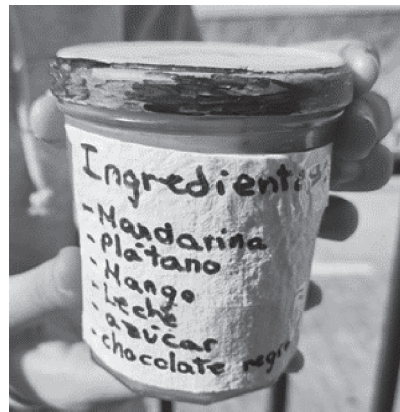 Ingredientes
-Mandarina
-Plátano
-Mango
-Leche
-azúcar
-chocolate negro